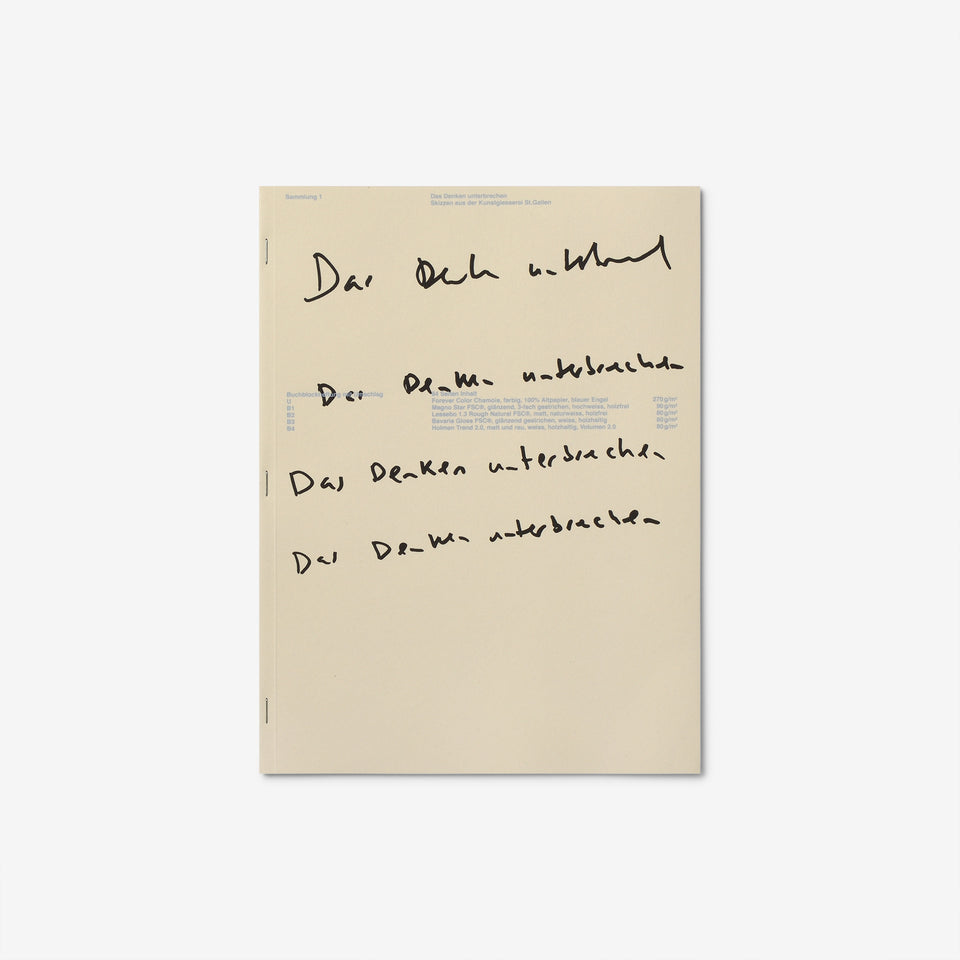 Sammlung 1
Das Denken unterbrechen
Skizzen aus der Kunstgiesserei St.Gallen
Das Denken unterbrechen
Das Denken unterbrechen
64 Seiten Inhalt
U Forever Color Chamois, farbig, 100% Altpapier, blauer Engel 270 g/m²
B1 Magno Star FSC®, glänzend, 3-fach gestrichen, hochweiss, holzfrei 90 g/m²
B2 Lessebo 1.3 Rough Natural FSC®, matt, naturweiss, holzfrei 80 g/m²
B3 Bavaria Gloss FSC®, glänzend gestrichen, weiss, holzhaltig 80 g/m²
B4 Holmen Trend 2.0, matt und rau, weiss, holzhaltig, Volumen 2.0 80 g/m²
Das Denken unterbrechen
Das Denken unterbrechen